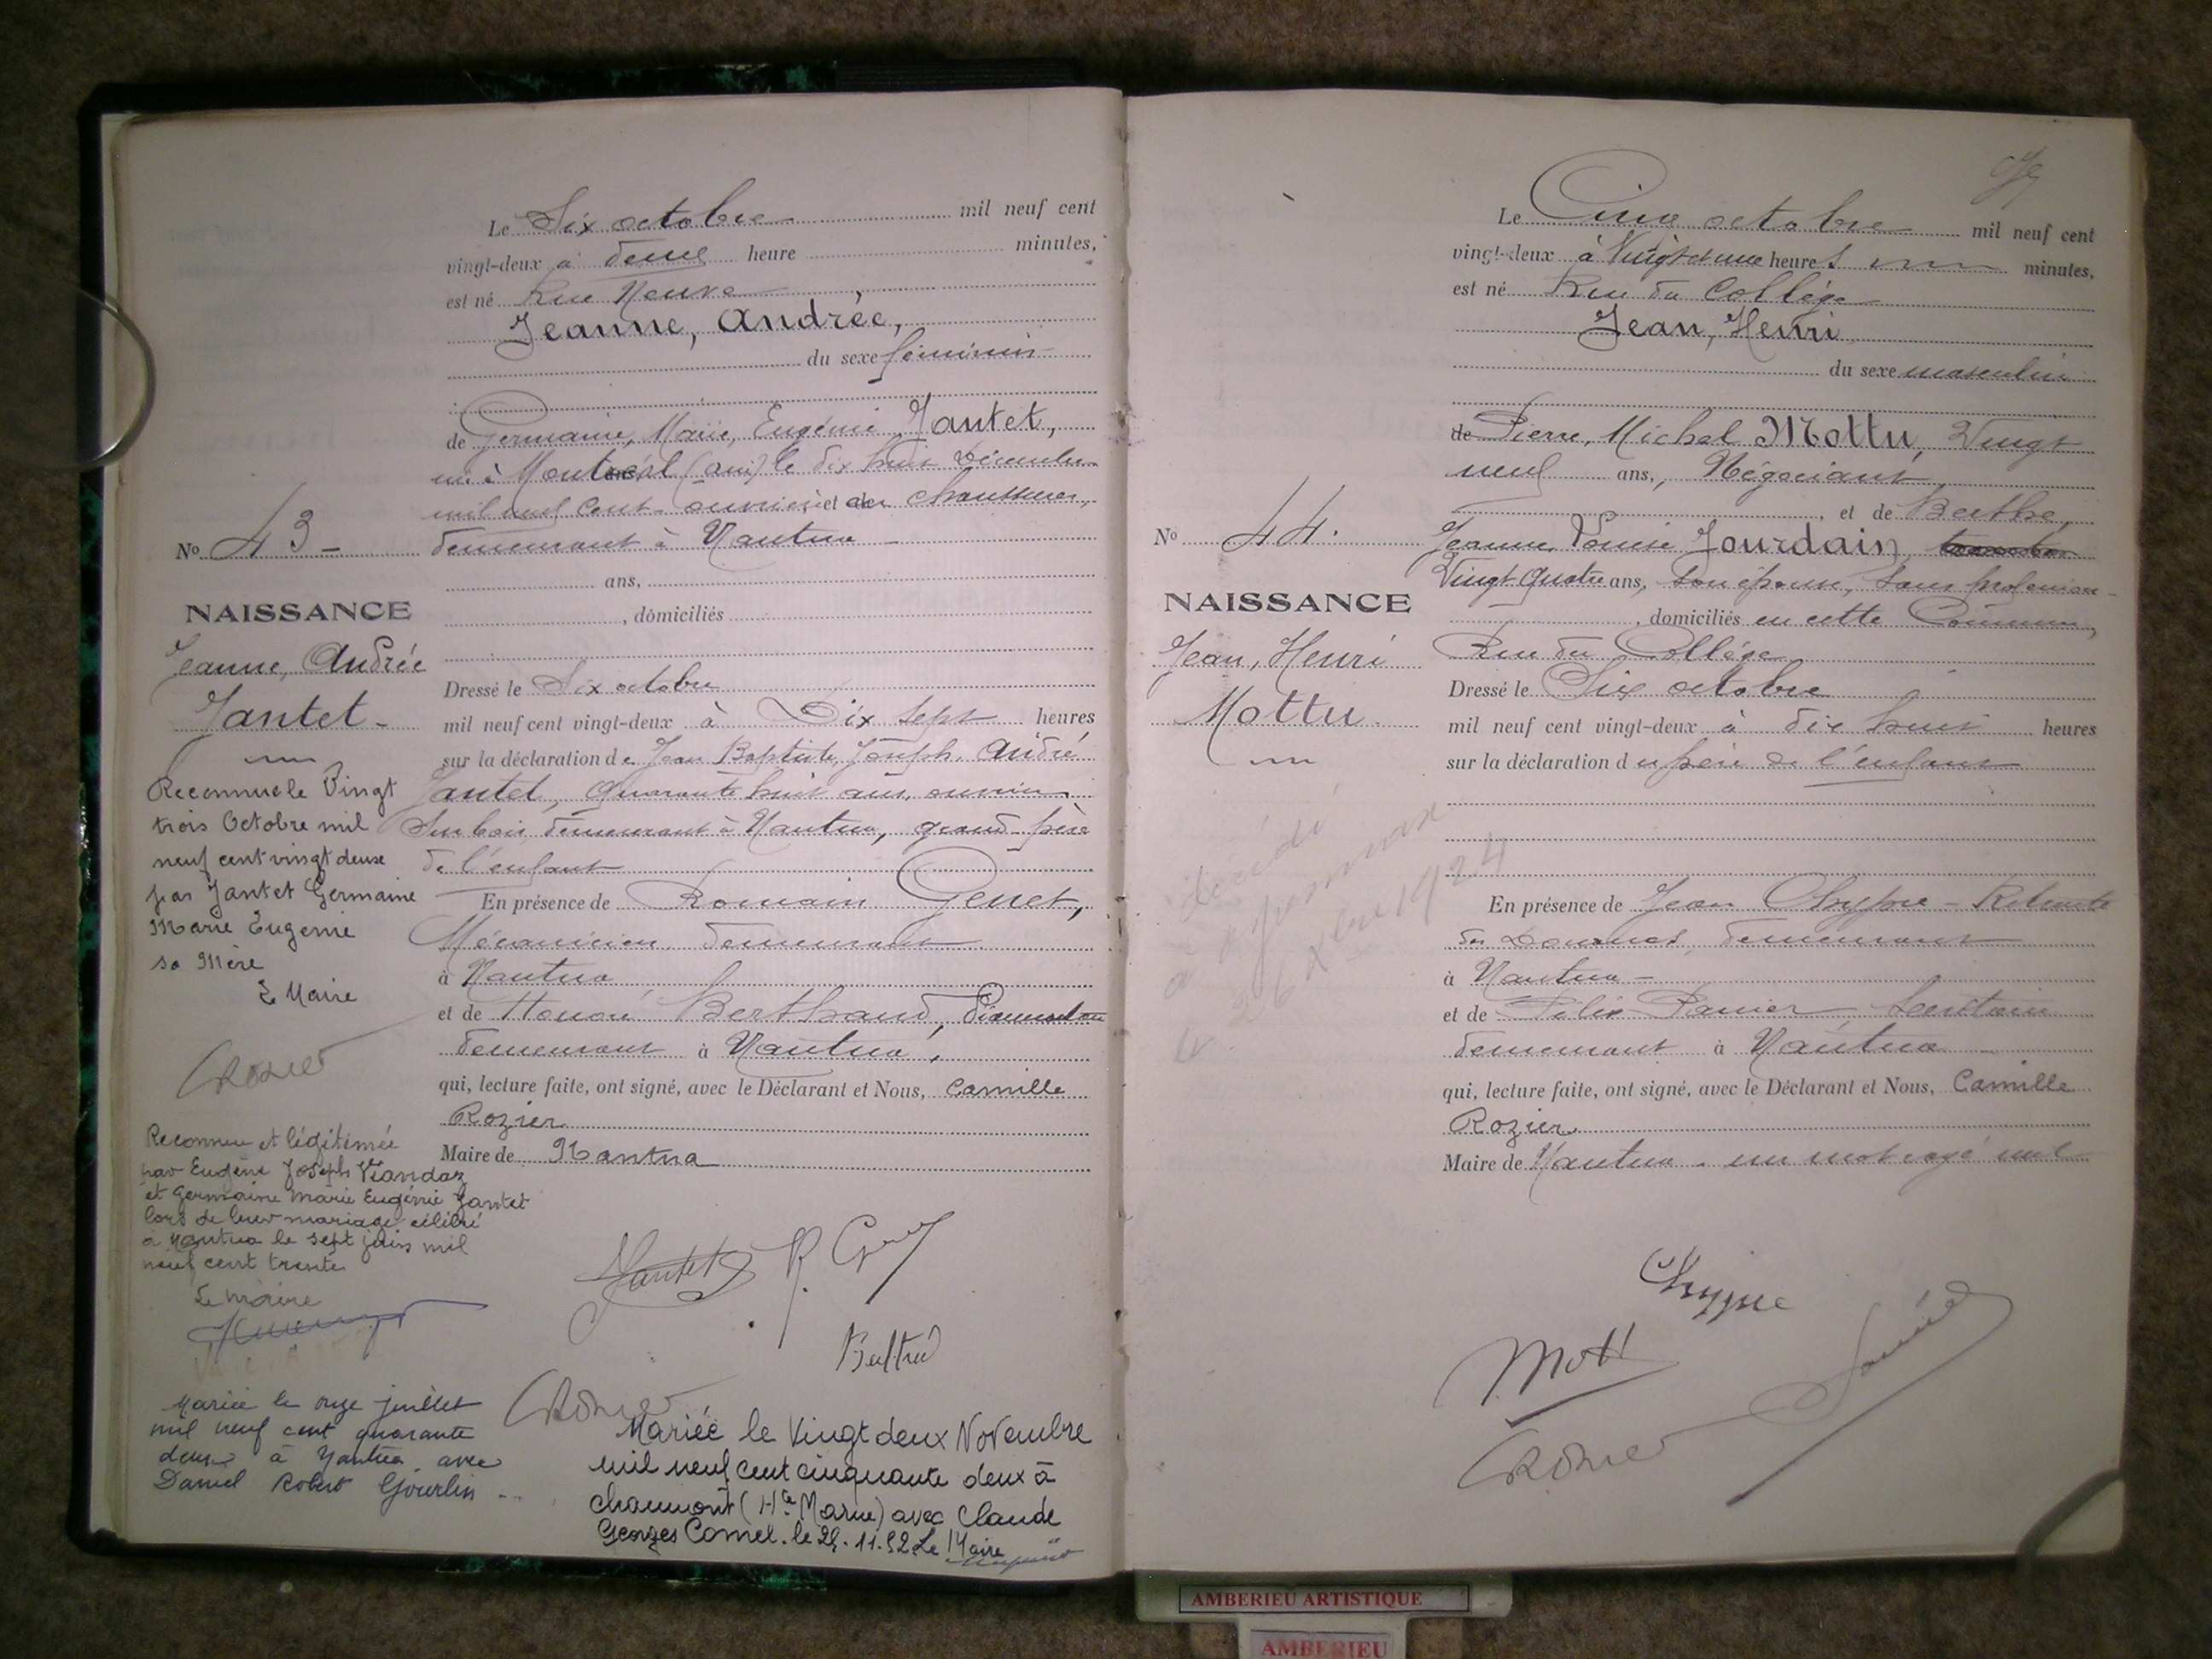 Le Six octobre mil neuf cent
vingt-deux à deux heure minutes,
est né Rue Neuve
Jeanne, Andrée,
du sexe féminin
de Germaine, Marie, Eugénie Jantet,
née à Montréal (ain) le dix huit décembre
mil neuf cent ouvrière et chaussures,
demeurant à Nantua
ans,
, domiciliés
Dressé le Six octobre
mil neuf cent vingt-deux à Dix sept heures
sur la déclaration de Jean Baptiste Joseph André
Jantet, quarante huit ans, ouvrier
sur bois, demeurant à Nantua, grand-père
de l'enfant
En présence de Romain Genet,
Mécanicien, demeurant
à Nantua
et de Honoré Berthaud,
demeurant à Nantua,
qui, lecture faite, ont signé, avec le Déclarant et Nous, Camille
Rozier
Maire de Nantua
No 43 -
NAISSANCE
Jeanne, Andrée
Jantet -
Reconnue le Vingt
trois Octobre mil
neuf cent vingt deux
par Jantet Germaine
Marie Eugenie
sa Mère
Le Maire
CRozier
Reconnue et légitimée
par Eugène Joseph Viandaz
et Germaine Marie Eugénie Jantet
lors de leur mariage célébré
à Nantua le sept juin mil
neuf cent trente
Le maire
Mariée le onze juillet
mil neuf cent quarante
deux à Nantua avec
Daniel Robert Gourlin
Jantet R. Genet
CRozier
Mariée le Vingt deux Novembre
mil neuf cent cinquante deux à
Chaumont (Hte Marne) avec Claude
Georges Comel. le 29.11.52 Le Maire
Le Cinq octobre mil neuf cent
vingt-deux à Vingt et une heures minutes,
est né Rue du Collège
Jean, Henri
du sexe masculin
de Pierre, Michel Mottu, Vingt
neuf ans, Négociant
, et de Berthe,
Jeanne, Louise Jourdain,
Vingt quatre ans, son épouse, sans profession
, domiciliés en cette Commune,
Rue du Collège
Dressé le Six octobre
mil neuf cent vingt-deux à dix huit heures
sur la déclaration du père de l'enfant
En présence de Jean Chypre - Retraité
des Douanes, demeurant
à Nantua -
et de Félix Panier, Secrétaire
demeurant à Nantua
qui, lecture faite, ont signé, avec le Déclarant et Nous, Camille
Rozier
Maire de Nantua. un mot rayé nul
No 44.
NAISSANCE
Jean, Henri
Mottu
décédé
à
le 26 Xbre 1924
Chypre
Mott
CRozier
AMBERIEU ARTISTIQUE
AMBERIEU